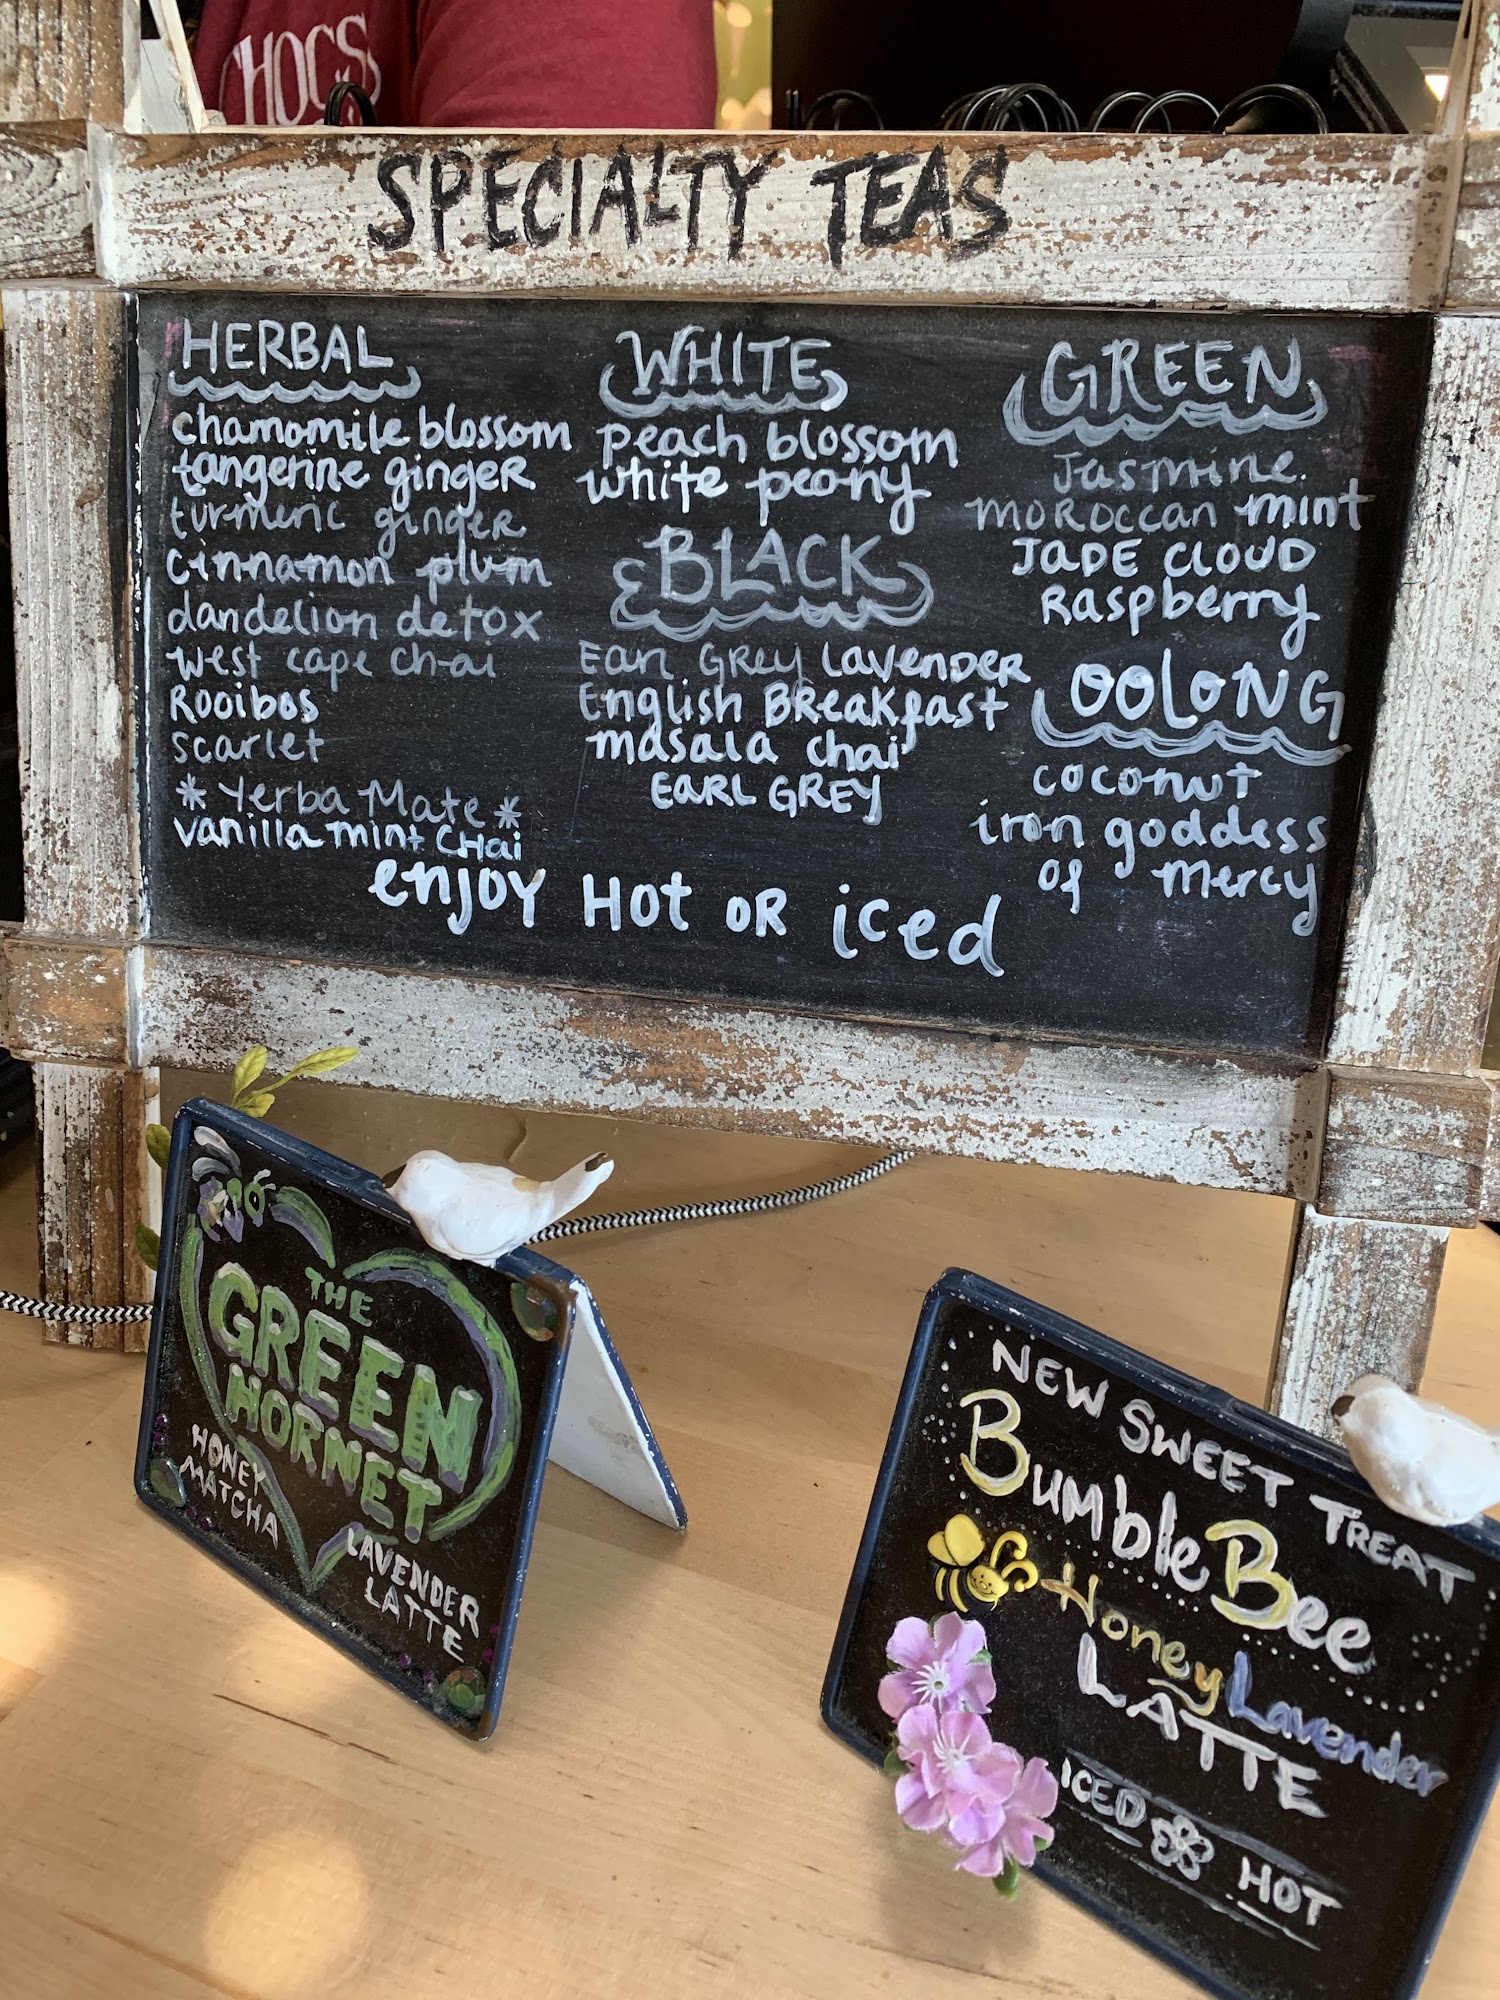 CHOCS
SPECIALTY TEAS
HERBAL
chamomile blossom
tangerine ginger
turmeric ginger
cinnamon plum
dandelion detox
west cape chai
Rooibos
scarlet
*Yerba Mate*
vanilla mint CHai
WHITE
peach blossom
white peony
BLACK
Earl GRey LavenDER
English BReakfast
masala chai
EaRL GREY
GREEN
Jasmine
moRoccan mint
JaDE CLOUD
Raspberry
OOLONG
coconut
iron goddess
of mercy
enjoy HOt OR iced
THE
GREEN
HORNET
HONEY
MATCHA
LAVENDER
LATTE
NEW SWEET TREAT
BumbleBee
Honey Lavender
LATTE
ICED HOT